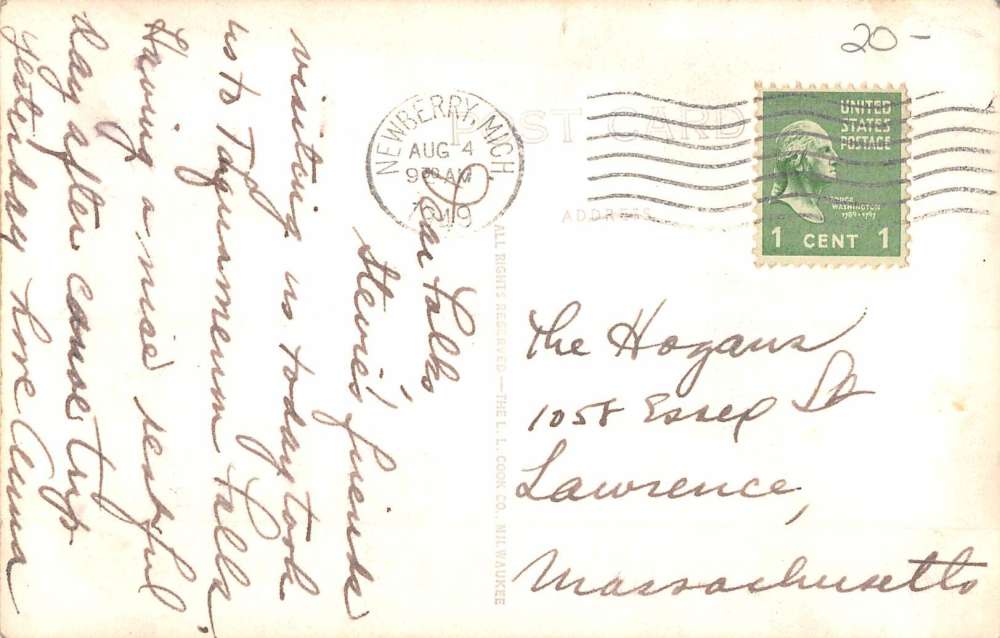 20-
POST CARD
NEWBERRY, MICH.
AUG 4
9 00 AM
1949
UNITED
STATES
POSTAGE
GEORGE
WASHINGTON
1789-1797
1 CENT 1
ADDRESS
Dear Folks,
Stevie's friends
visiting us today took
us to Taquamenum Falls.
Having a nice restful
day after canoe trip
yesterday Love Anna
ALL RIGHTS RESERVED—THE L. L. COOK CO., MILWAUKEE
The Hogans
1058 Essex St
Lawrence,
Massachusetts